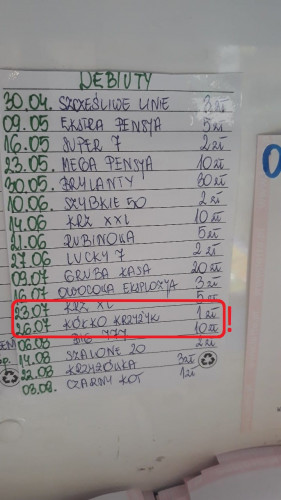 DEBIUTY
30.04. SZCZĘŚLIWE LINIE 3 zł
09.05 EKSTRA PENSJA 5 zł
16.05 SUPER 7 2 zł
23.05 MEGA PENSJA 10 zł
30.05 BRYLANTY 30 zł
10.06 SZYBKIE 50 2 zł
14.06 KRZ XXL 10 zł
21.06 RUBINOWA 5 zł
27.06 LUCKY 7 2 zł
09.07 GRUBA KASA 20 zł
16.07 OWOCOWA EKSPLOZJA 3 zł
23.07 KRZ XL 5 zł
26.07 KÓŁKO KRZYŻYK 1 zł
06.08 BIG 777 10 zł !
14.08 SZALONE 20 2 zł
22.08 KRZYŻÓWKA 3 zł
CZARNY KOT 1 zł